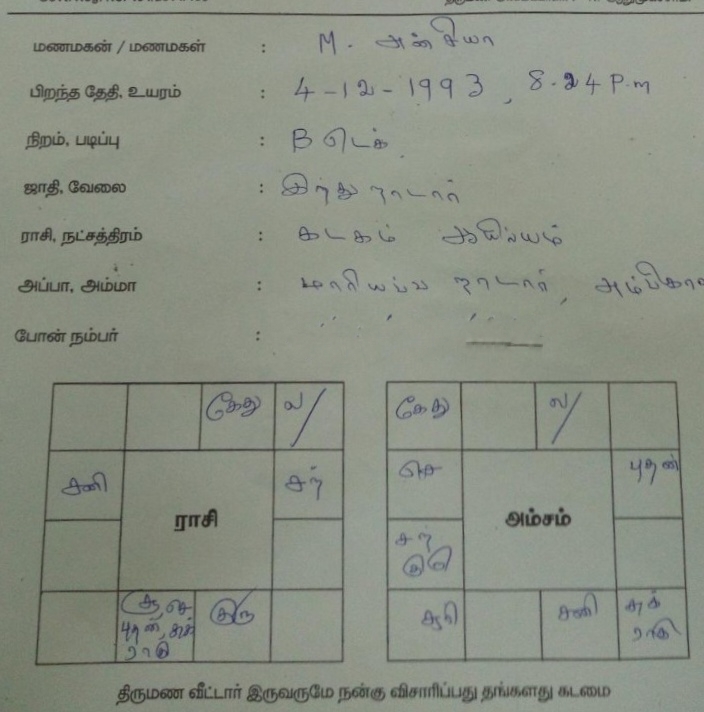 மணமகன் / மணமகள் : M.
பிறந்த தேதி, உயரம் : 4-12-1993, 8.24 P.m
நிறம், படிப்பு : B டெக்
ஜாதி, வேலை : இந்து நாடார்
ராசி, நட்சத்திரம் : கடகம் ஆயில்யம்
அப்பா, அம்மா : மாரியப்ப நாடார்,
போன் நம்பர் :
கேது ல/
சனி சந்
ராசி
சூ, செ குரு
புதன், சுக்
ராகு
கேது ல/
செ புதன்
அம்சம்
சந்
குரு
சூரி சனி சுக்
ராகு
திருமண வீட்டார் இருவருமே நன்கு விசாரிப்பது தங்களது கடமை